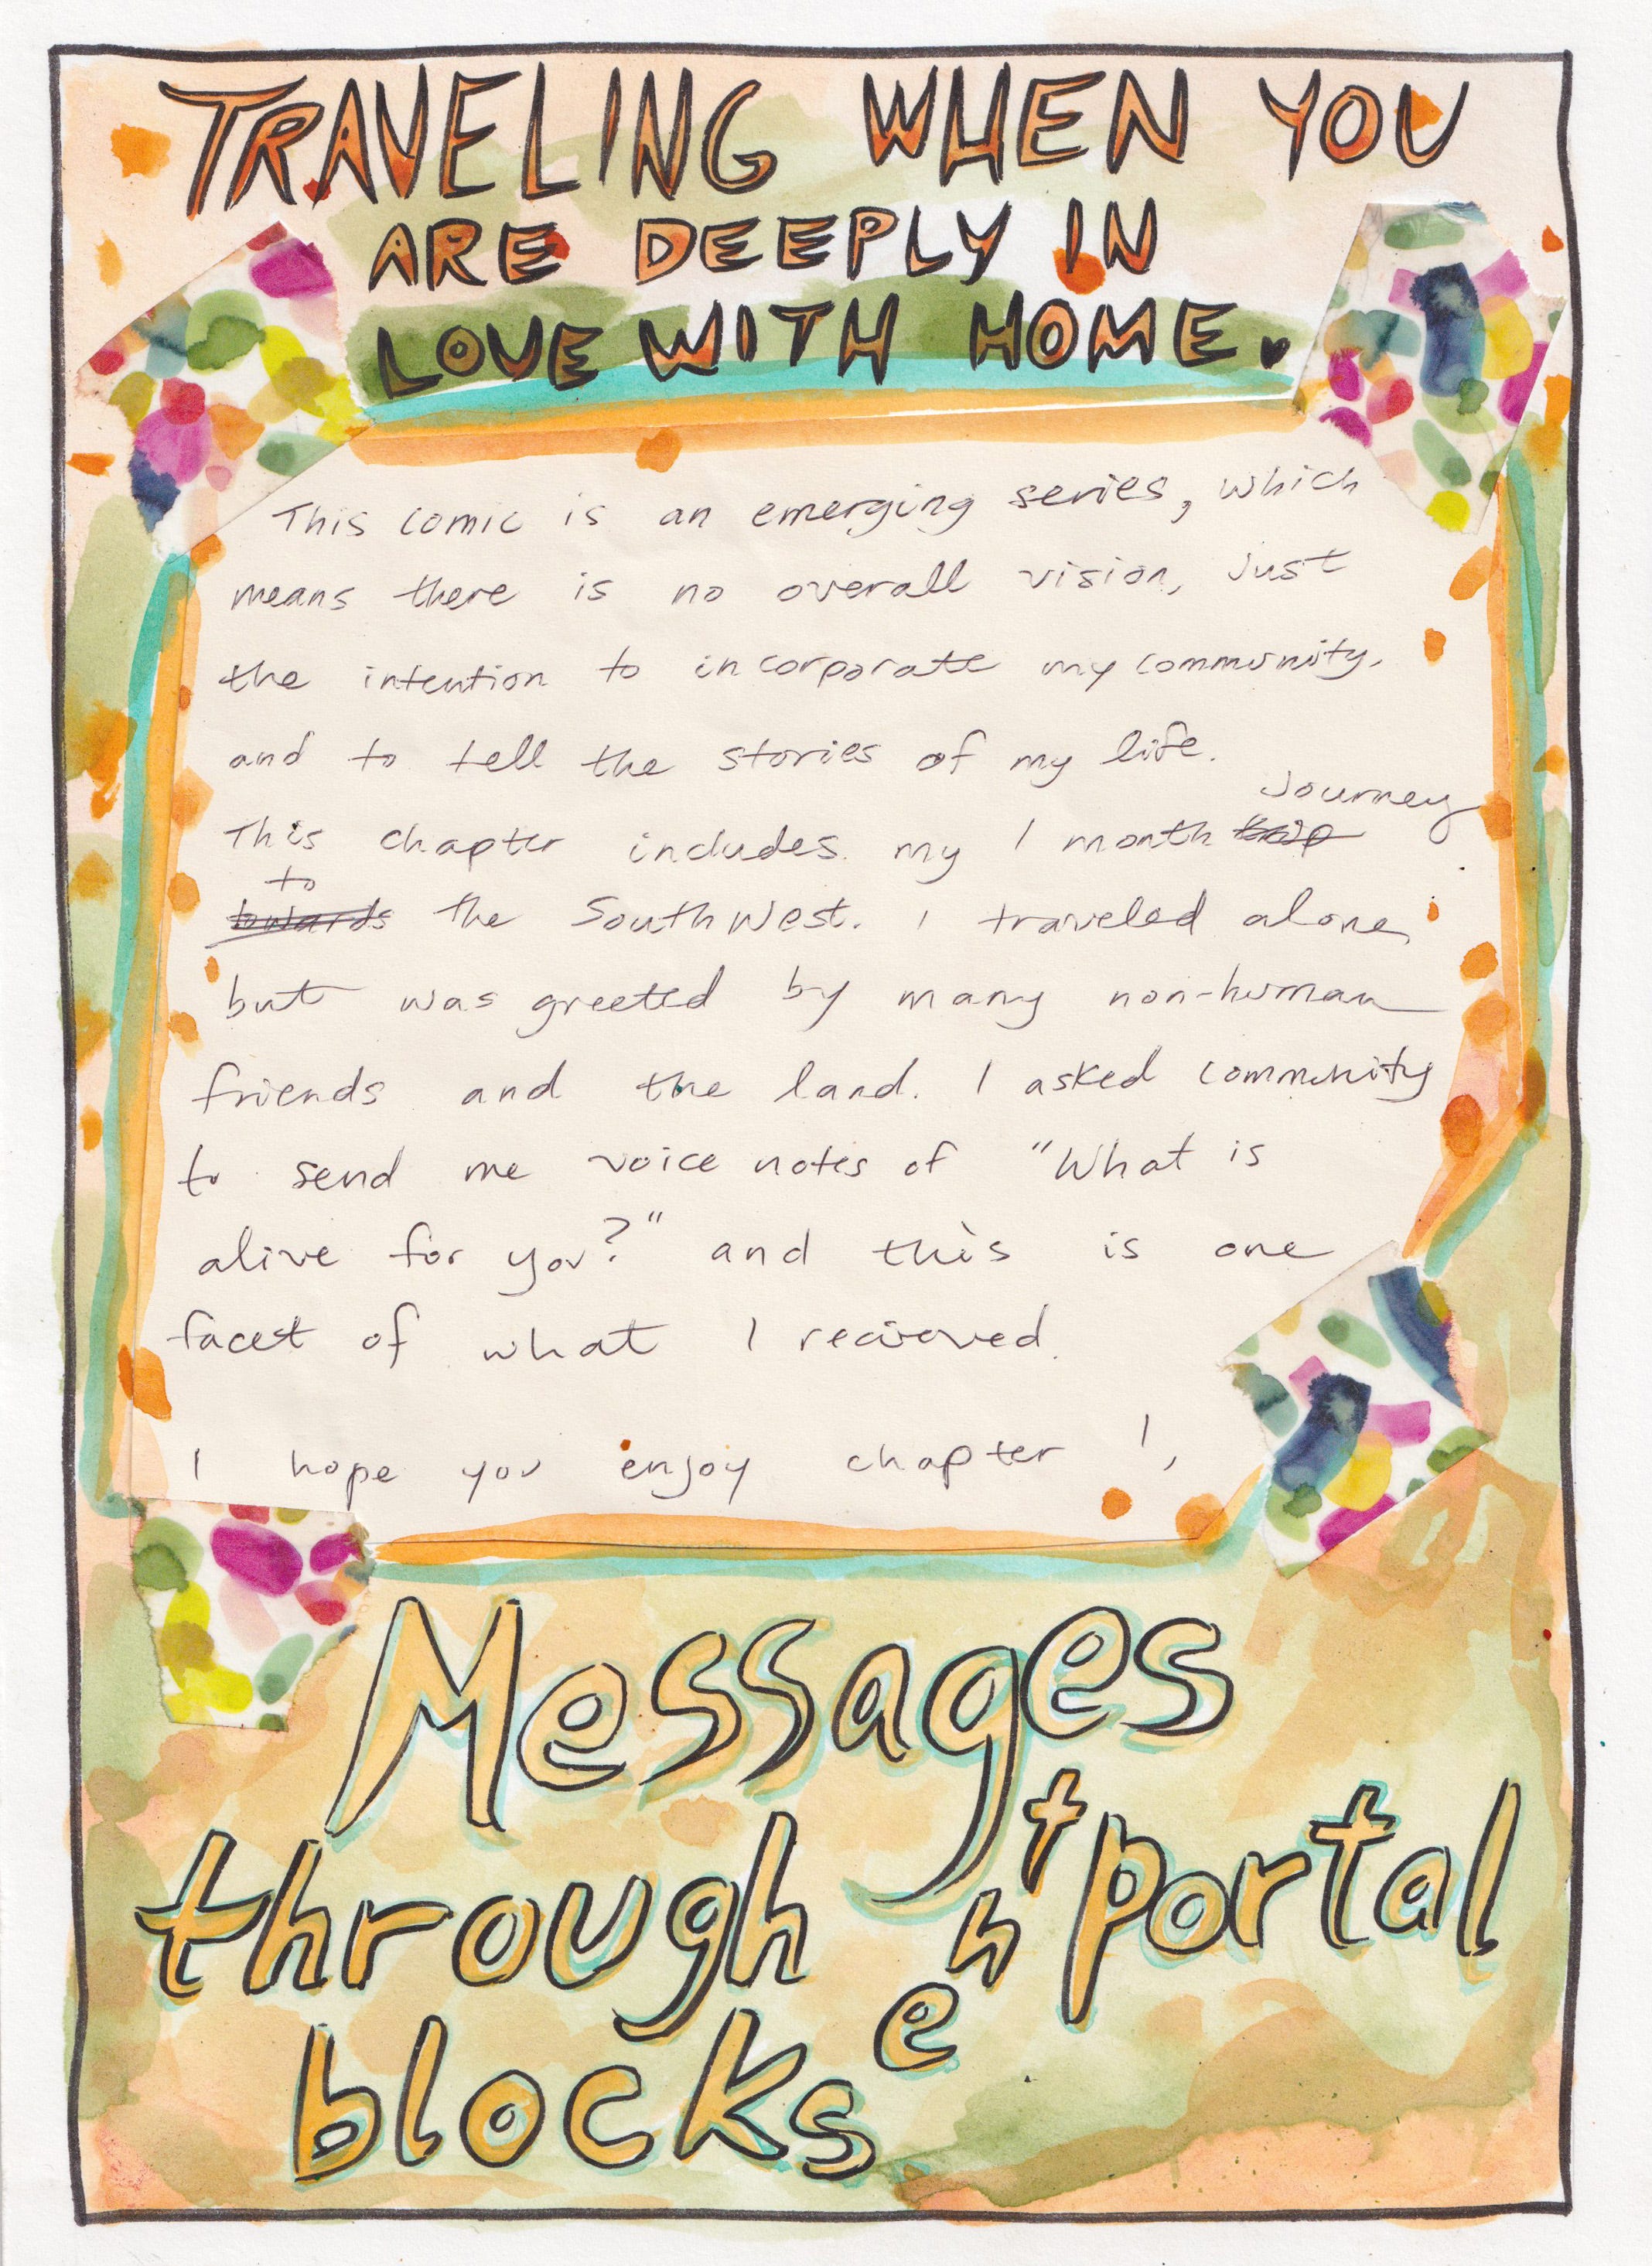 TRAVELING WHEN YOU
ARE DEEPLY IN
LOVE WITH HOME.
This comic is an emerging series, which
means there is no overall vision, Just
the intention to incorporate my community,
and to tell the stories of my life.
This chapter includes my 1 month trip Journey
towards to the SouthWest. I traveled alone,
but was greeted by many non-human
friends and the land. I asked community
to send me voice notes of "What is
alive for you?" and this is one
facet of what I recieved.
I hope you enjoy chapter 1,
Messages
through the portal
blocks